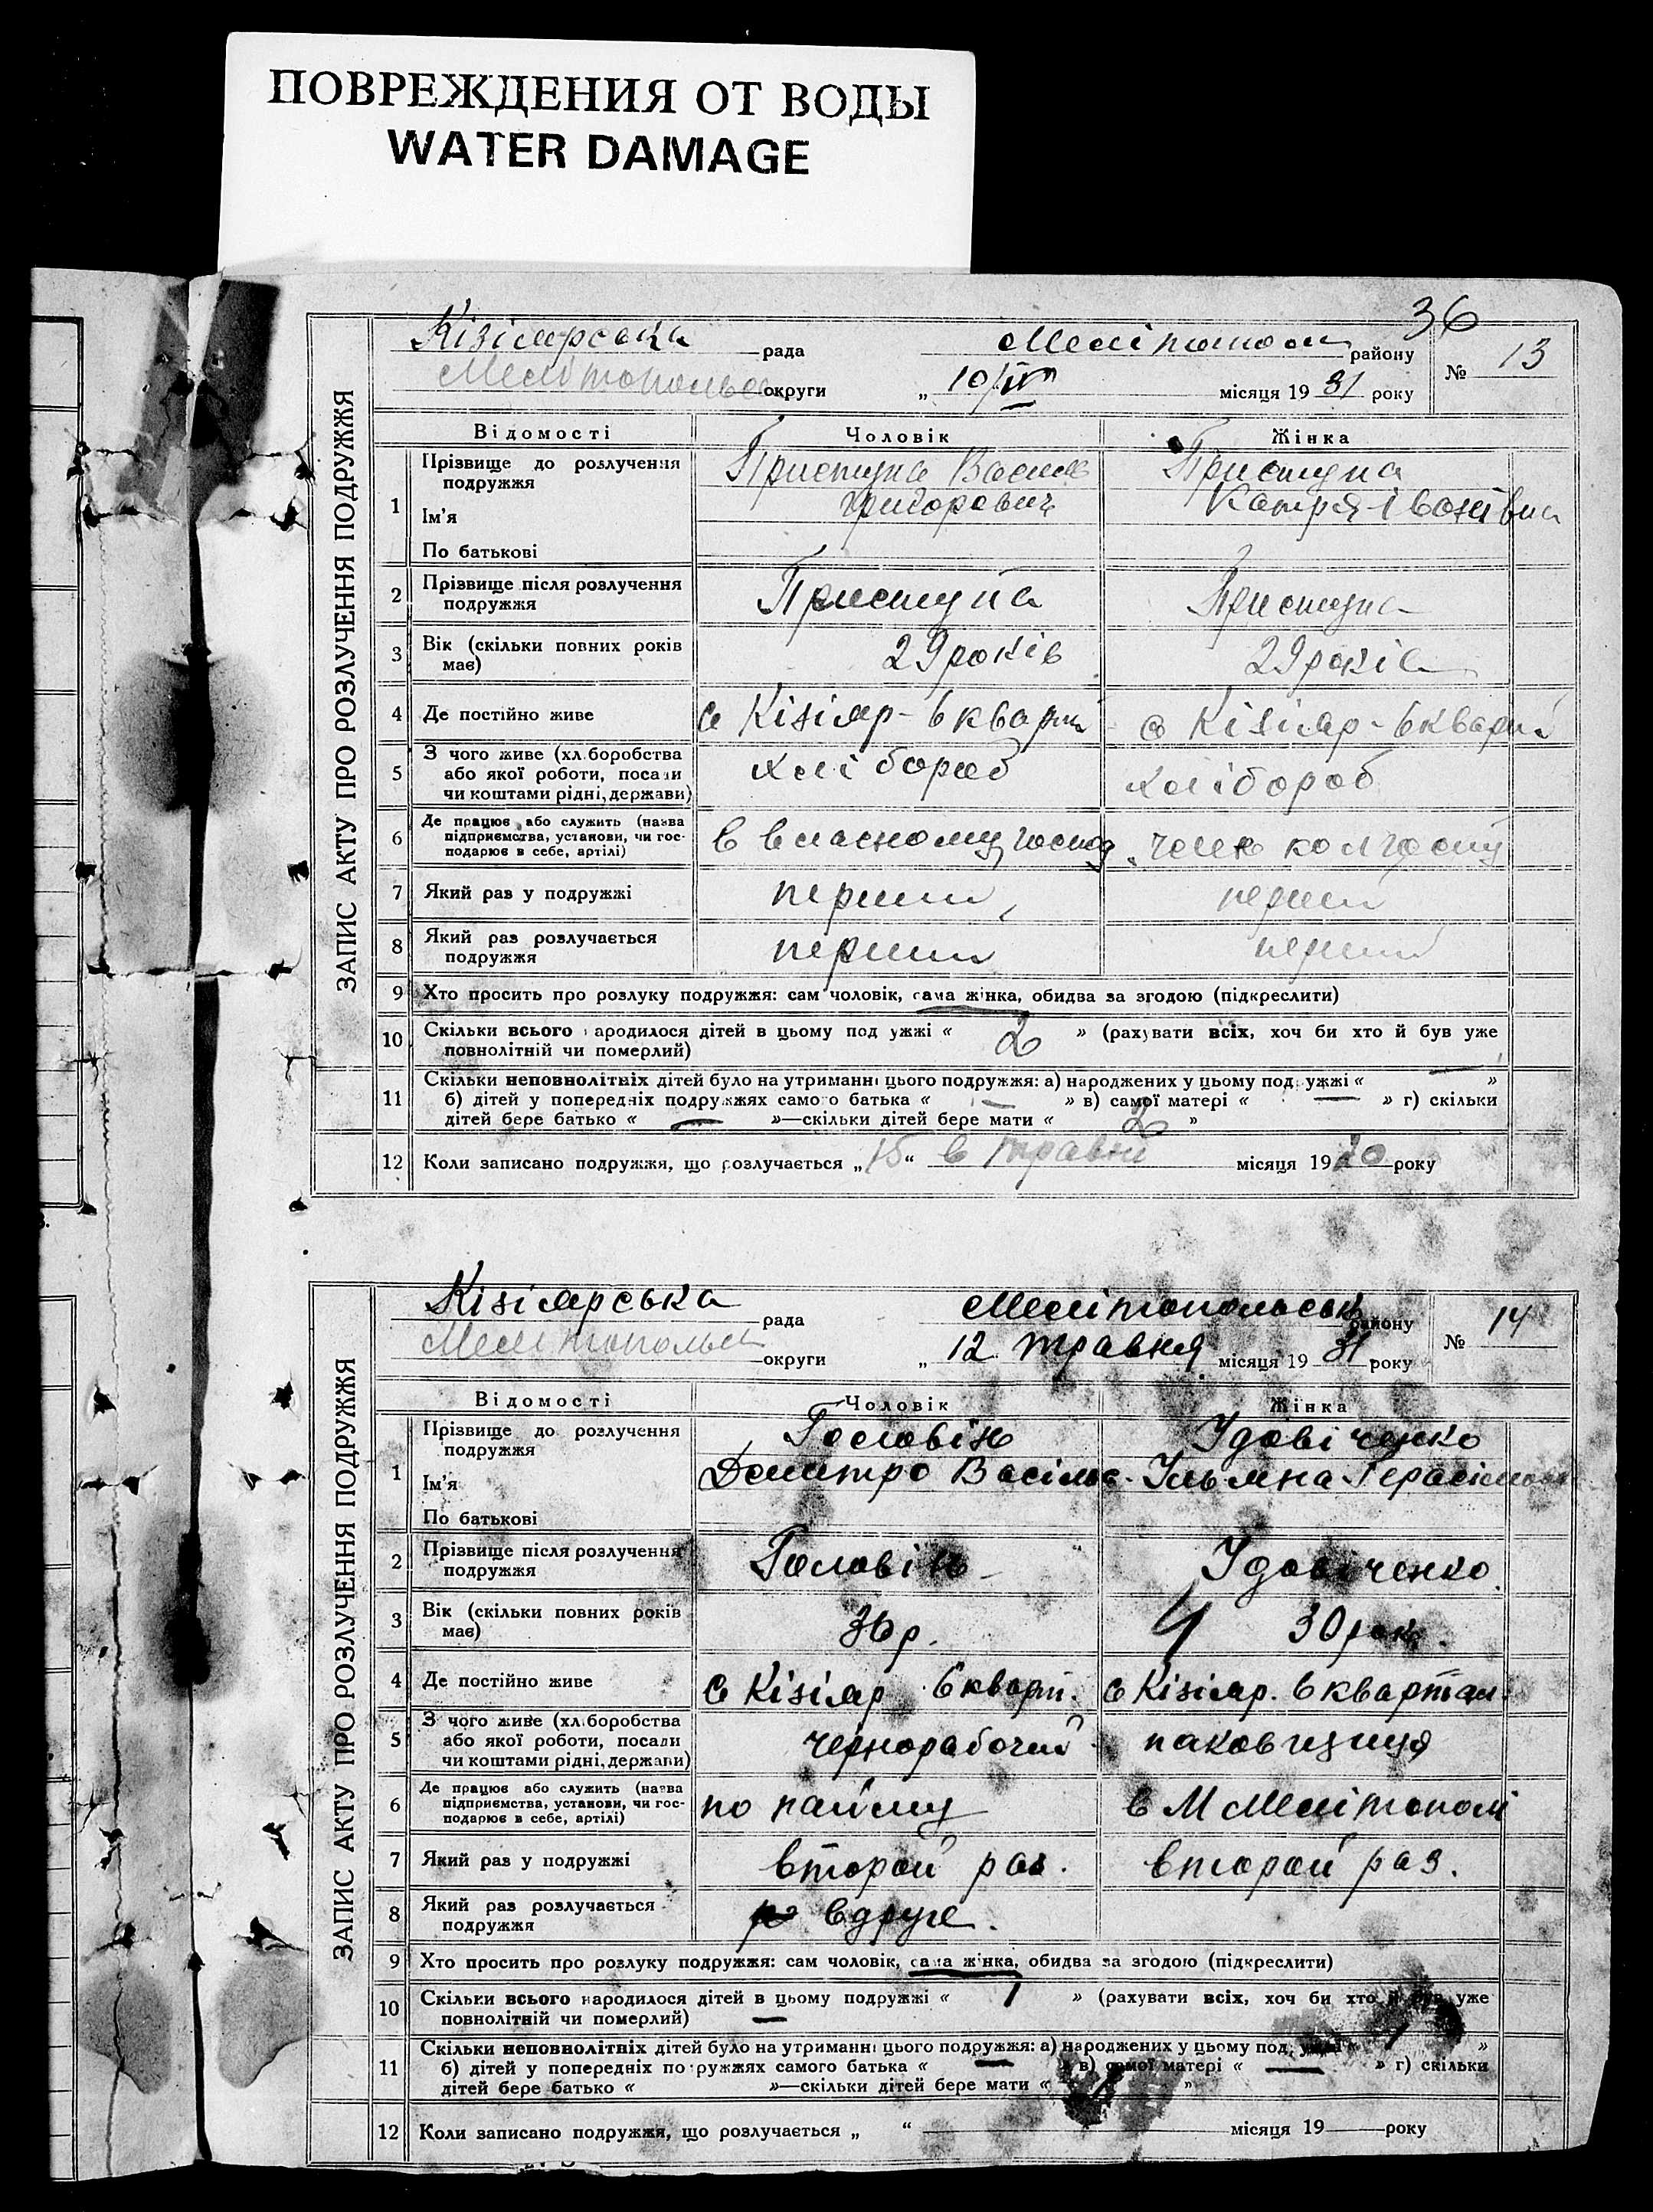 ПОВРЕЖДЕНИЯ ОТ ВОДЫ
WATER DAMAGE
36
ЗАПИС АКТУ ПРО РОЗЛУЧЕННЯ ПОДРУЖЖЯ
Кізіярська рада Мелітопол району № 13
Мелітопольс округи „ 10/IV місяця 19 31 року
Відомості Чоловік Жінка
1 Прізвище до розлучення подружжя Приступа Василь Приступа
Ім'я Григорович Катря Іванівна
По батькові
2 Прізвище після розлучення подружжя Приступа Приступа
3 Вік (скільки повних років має) 29 років 29 років
4 Де постійно живе с Кізіяр - 6 кварт с Кізіяр - 6 кварт
5 З чого живе (хліборобства або якої роботи, посади чи коштами рідні, держави) хлібороб хлібороб
6 Де працює або служить (назва підприємства, установи, чи господарює в себе, артілі) в власному господ. член колгоспу
7 Який раз у подружжі перший перший
8 Який раз розлучається подружжя перший перший
9 Хто просить про розлуку подружжя: сам чоловік, сама жінка, обидва за згодою (підкреслити)
10 Скільки всього народилося дітей в цьому подружжі « 2 » (рахувати всіх, хоч би хто й був уже
повнолітній чи померлий)
11 Скільки неповнолітніх дітей було на утриманні цього подружжя: а) народжених у цьому подружжі « — »
б) дітей у попередніх подружжях самого батька « — » в) самої матері « — » г) скільки
дітей бере батько « — »—скільки дітей бере мати « 2 »
12 Коли записано подружжя, що розлучається „ 15 “ в травні місяця 19 20 року
ЗАПИС АКТУ ПРО РОЗЛУЧЕННЯ ПОДРУЖЖЯ
Кізіярська рада Мелітопольськ району № 14
Мелітопольс округи „ 12 травня місяця 19 31 року
Відомості Чоловік Жінка
1 Прізвище до розлучення подружжя Головін Удовіченко
Ім'я Дмитро Васільв. Ульяна Герасімовна
По батькові
2 Прізвище після розлучення подружжя Головін Удовіченко
3 Вік (скільки повних років має) 36 р. 30 рок.
4 Де постійно живе с Кізіяр 6 кварт. с Кізіяр. 6 квартал.
5 З чого живе (хліборобства або якої роботи, посади чи коштами рідні, держави) чернорабочий паковщиця
6 Де працює або служить (назва підприємства, установи, чи господарює в себе, артілі) по найму в М Мелітополі
7 Який раз у подружжі второй раз. второй раз.
8 Який раз розлучається подружжя вдруге.
9 Хто просить про розлуку подружжя: сам чоловік, сама жінка, обидва за згодою (підкреслити)
10 Скільки всього народилося дітей в цьому подружжі « 1 » (рахувати всіх, хоч би хто й був уже
повнолітній чи померлий)
11 Скільки неповнолітніх дітей було на утриманні цього подружжя: а) народжених у цьому подружжі « 1 »
б) дітей у попередніх подружжях самого батька « — » в) самої матері « — » г) скільки
дітей бере батько « »—скільки дітей бере мати « »
12 Коли записано подружжя, що розлучається „ “ місяця 19 року